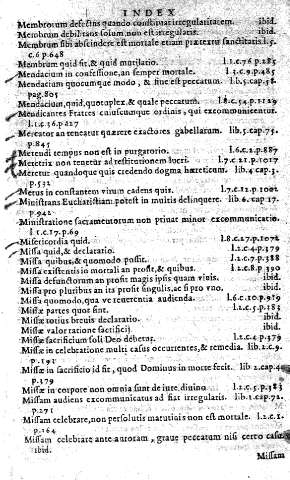 INDEX
Membrorum defectus quando constituat irregularitatem. ibid.
Membrum debilitans solum non est irregularis. ibid.
Membrum sibi abscindere est mortale etiam prætextu sanctitatis. l.5.
c.6 p.648
Membrum quid sit, & quid mutilatio. l.1.c.76 p.285
Mendacium in confessione, an semper mortale. l.3.c.9 p.485
Mendacium quocumque modo, & sine est peccatum. lib.5.cap.58.
pag.805
Mendacium, quid, quotuplex, & quale peccatum. l.8.c.54.p.1129
Mendicantes Fratres cuiuscumque ordinis, qui excommunicentur.
l.1.c.56.p.227
Mercator an teneatur quærere exactores gabellarum. lib.5.cap.75.
p.845
Merendi tempus non est in purgatorio. l.6.c.2.p.887
Meretrix non tenetur ad restitutionem lucri. l.7.c.21.p.1017
Meretur quandoque quis credendo dogma hæreticum. lib.4 cap.3.
p.532
Metus in constantem virum cadens quis. l.7.c.12.p.1002
Ministrans Eucharistiam potest in multis delinquere. lib.6.cap.17.
p.942
Ministratione sacramentorum non priuat minor excommunicatio.
l.1.c.17.p.69
Misericordia quid. l.8.c.17.p.1072
Missa quid, & declaratio. l.2.c.4.p.379
Missa quibus, & quomodo possit. l.2.c.7.p.388
Missa existentis in mortali an prosit, & quibus. l.2.c.8.p 390
Missa defunctorum an prosit magis ipsis quam viuis. ibid.
Missa pro pluribus an ita prosit singulis, ac si pro vno. ibid.
Missa quomodo, qua ve reuerentia audienda. l.6.c.10.p.919
Missæ partes quot sint. l.2.c.5.p.382
Missæ totius breuis declaratio. ibid.
Missæ valor ratione sacrificij. ibid.
Missæ sacrificium soli Deo debetur. l.2.c.4.p.379
Missæ in celebratione multi casus occurrentes, & remedia. lib.2.c.9.
p.391
Missæ in sacrificio id fit, quod Dominus in morte fecit. lib 2.cap.4.
p.379
Missæ in corpore non omnia sunt de iure diuino l.2.c.5.p.383
Missam audiens excommunicatus ad fiat irregularis. lib.1.cap.72.
p.271
Missam celebrare, non persolutis matutinis non est mortale. l.2.c.1.
p.364
Missam celebrare ante auroram, graue peccatum nisi certo casu.
ibid.
Missam